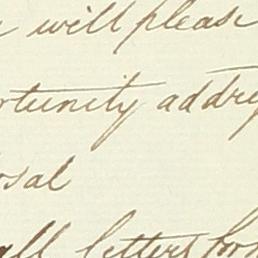 will please
rtunity addre
osal
all letters for